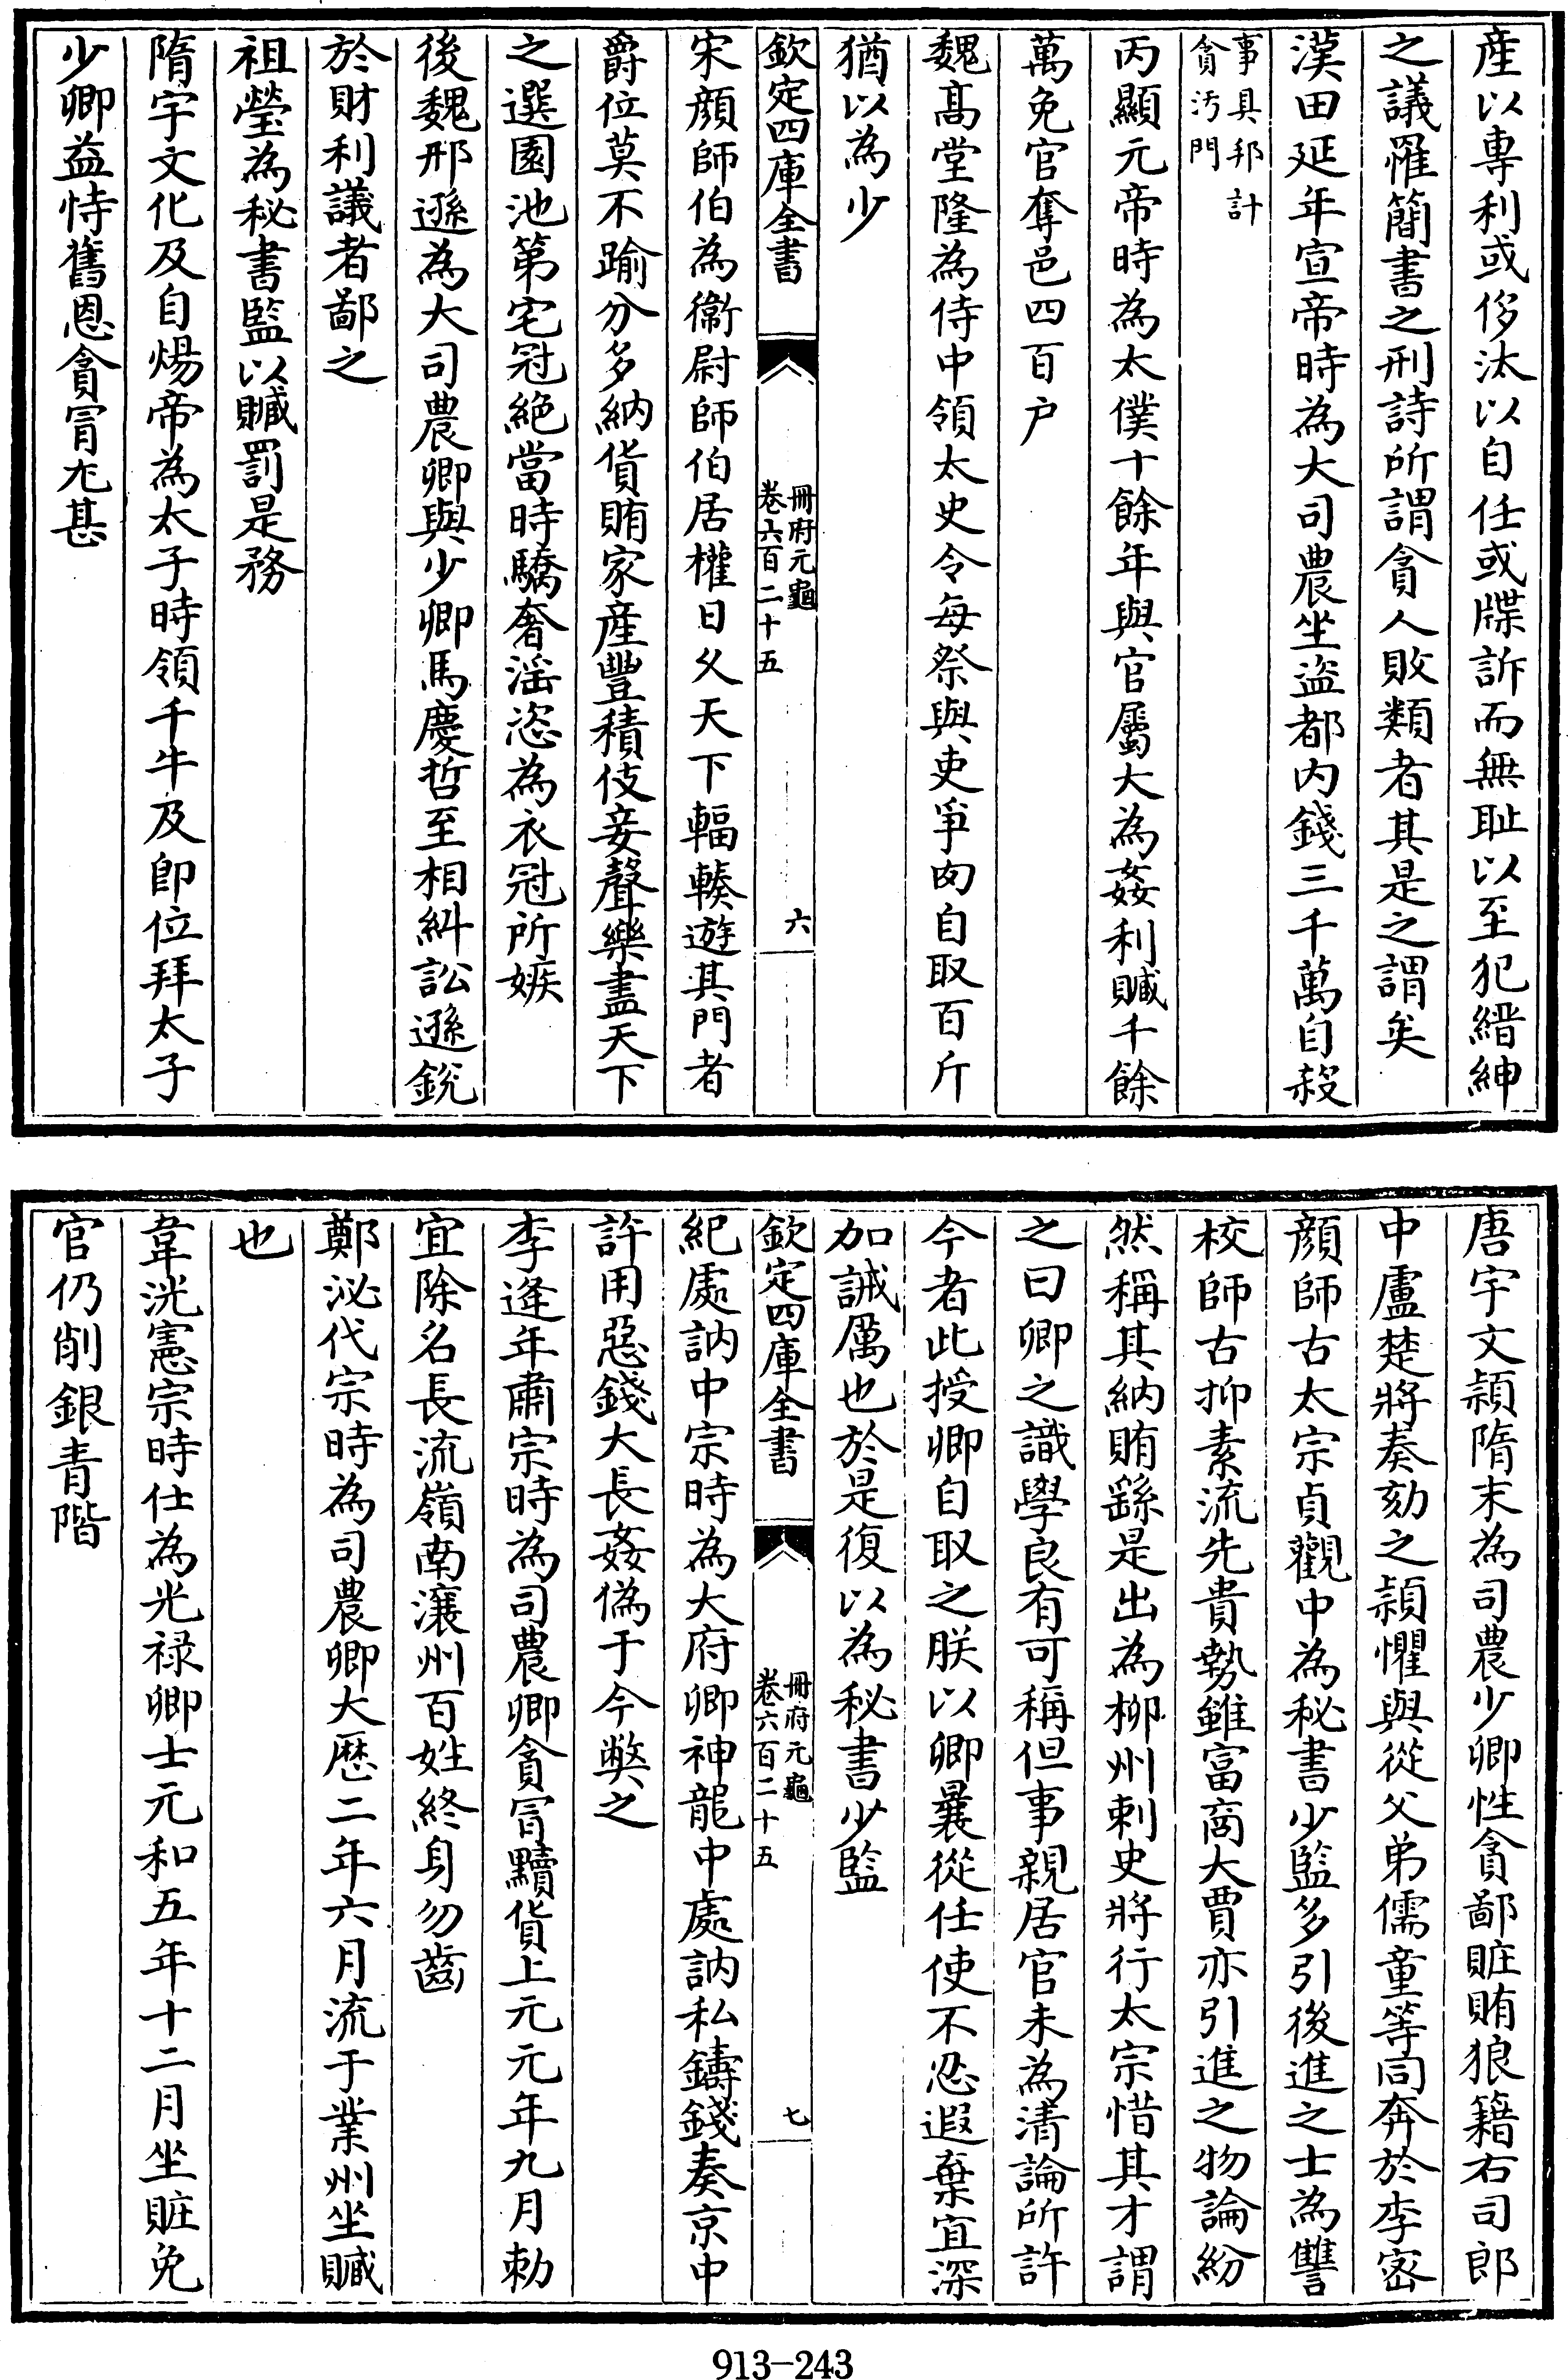 産以專利或侈汰以自任或牒訴而無耻以至犯縉紳
之議罹簡書之刑詩所謂貪人敗類者其是之謂矣
漢田延年宣帝時為大司農坐盜都内錢三千萬自殺
事具邦計
貪污門
丙顯元帝時為太僕十餘年與官屬大為姦利贓千餘
萬免官奪邑四百户
魏髙堂隆為侍中領太史令每祭與吏爭肉自取百斤
猶以為少
欽定四庫全書
冊府元龜
卷六百二十五
六
宋顔師伯為衞尉師伯居權日久天下輻輳遊其門者
爵位莫不踰分多納貨賄家産豐積伎妾聲樂盡天下
之選園池第宅冠絶當時驕奢淫恣為衣冠所嫉
後魏邢遜為大司農卿與少卿馬慶哲至相糾訟遜銳
於財利議者鄙之
祖瑩為秘書監以贓罰是務
隋宇文化及自煬帝為太子時領千牛及即位拜太子
少卿益恃舊恩貪冒尤甚
唐宇文頴隋末為司農少卿性貪鄙賍賄狼籍右司郎
中盧楚將奏劾之頴懼與從父弟儒童等同奔於李密
顔師古太宗貞觀中為秘書少監多引後進之士為讐
校師古抑素流先貴勢雖富商大賈亦引進之物論紛
然稱其納賄繇是出為柳州刺史將行太宗惜其才謂
之曰卿之識學良有可稱但事親居官未為清論所許
今者此授卿自取之朕以卿曩從任使不忍遐棄宜深
加誡厲也於是復以為秘書少監
欽定四庫全書
冊府元龜
卷六百二十五
七
紀處訥中宗時為大府卿神龍中處訥私鑄錢奏京中
許用惡錢大長姦偽于今獘之
李逢年肅宗時為司農卿貪冒黷貨上元元年九月勅
宜除名長流嶺南瀼州百姓終身勿齒
鄭泌代宗時為司農卿大厯二年六月流于業州坐贓
也
韋洸憲宗時仕為光禄卿士元和五年十二月坐賍免
官仍削銀青階
913-243